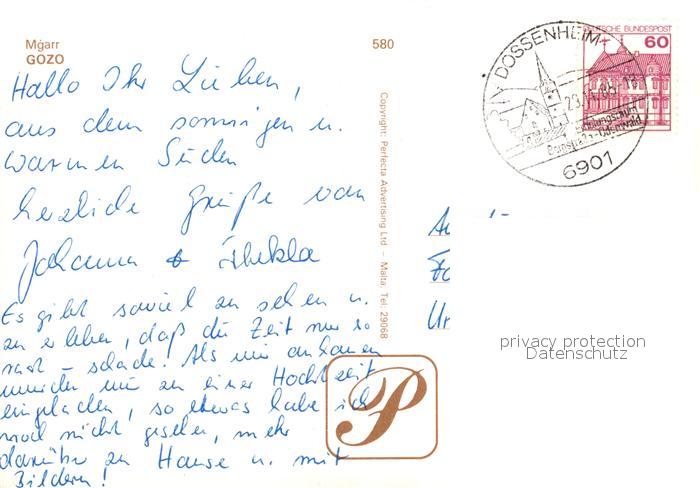 Mġarr
GOZO
580
Hallo Ihr Lieben,
aus dem sonnigen u.
warmen Süden
herzliche Grüße von
Johanna + Thekla
Es gibt soviel zu sehen u.
zu erleben, daß die Zeit nur so
rast - schade! Als wir ankamen
wurden wir zu einer Hochzeit
eingeladen, so etwas habe ich
noch nicht gesehen, mehr
darüber zu Hause u. mit
Bildern!
Copyright: Perfecta Advertising Ltd - Malta. Tel 29068
P
DOSSENHEIM
6901
DEUTSCHE BUNDESPOST
60
privacy protection
Datenschutz